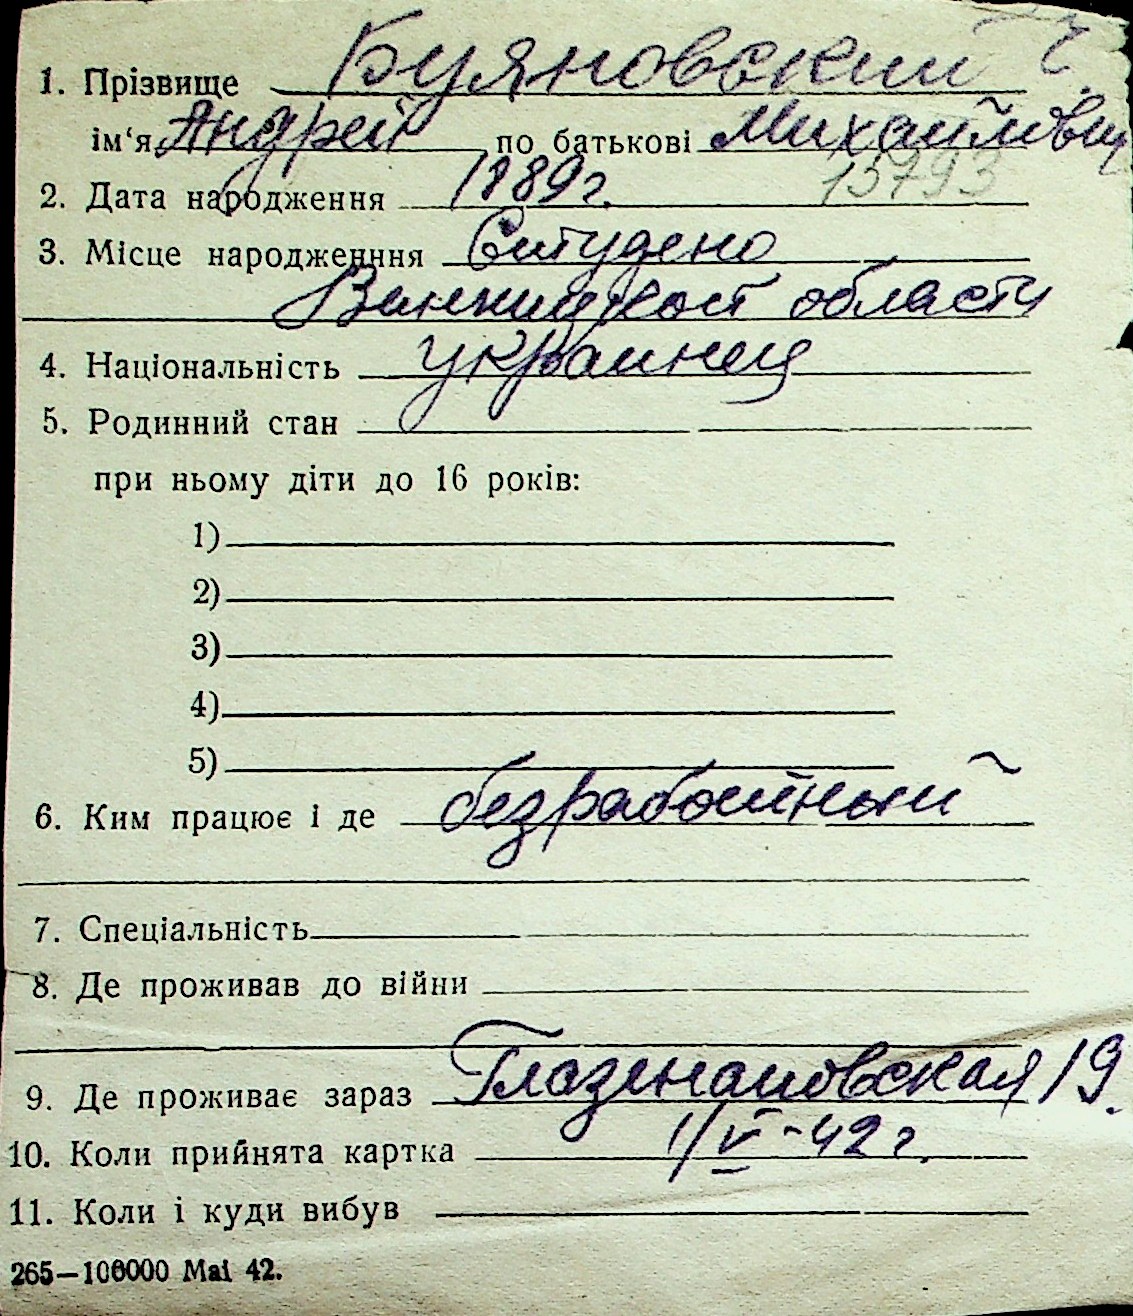 1. Прізвище Буяновский Ч.
ім‘я Андрей по батькові Михайлович
15793
2. Дата народження 1889г.
3. Місце народженння
Винницкой области
4. Національність украинец
5. Родинний стан
при ньому діти до 16 років:
1)
2)
3)
4)
5)
6. Ким працює і де безработный
7. Спеціальність
8. Де проживав до війни
9. Де проживає зараз 19.
10. Коли прийнята картка 1/V-42г.
11. Коли і куди вибув
265—100000 Mai 42.